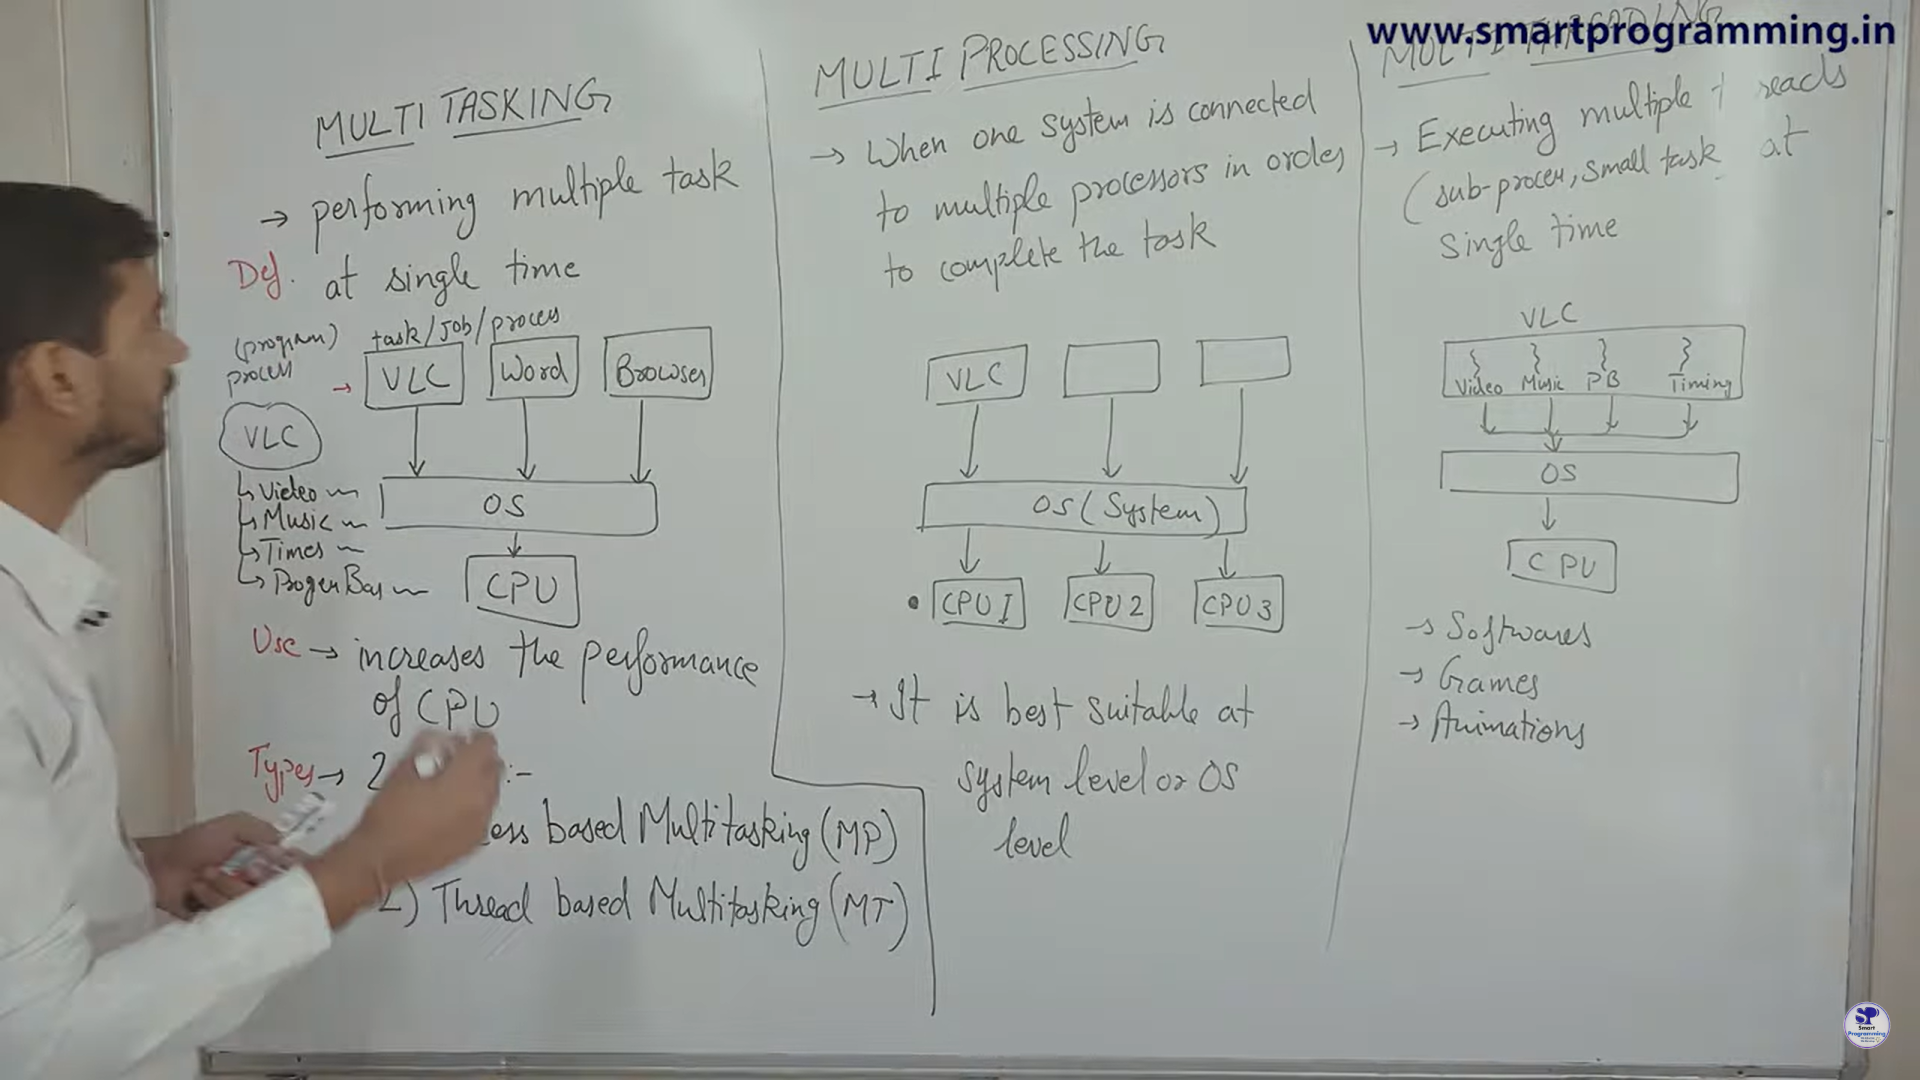 www.smartprogramming.in
MULTI TASKING
→ performing multiple task
Def. at single time
(program) task/Job/process
process → VLC Word Browser
VLC
Video
Music
Times
OS
CPU
Use → increases the performance
of CPU
Types → 2 :-
ess based Multitasking (MP)
2) Thread based Multitasking (MT)
MULTI PROCESSING
→ When one system is connected
to multiple processors in order
to complete the task
VLC
OS (System)
CPU 1 CPU 2 CPU 3
→ It is best suitable at
system level or OS
level
MULTI THREADING
→ Executing multiple threads
(sub-process, small task at
single time
VLC
Video Music PB Timing
OS
CPU
→ Softwares
→ Games
→ Animations
SP
Smart
Programming